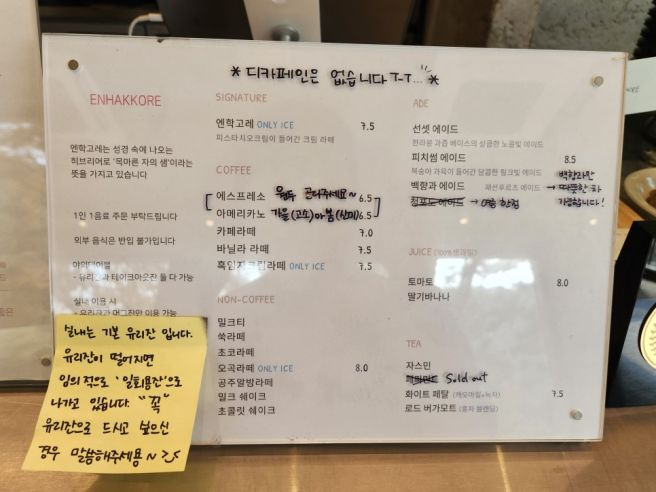 * 디카페인은 없습니다 T-T... *
ENHAKKORE
엔학고레는 성경 속에 나오는
히브리어로 '목마른 자의 샘'이라는
뜻을 가지고 있습니다
1인 1음료 주문 부탁드립니다
외부 음식은 반입 불가입니다
야외테이블
- 유리잔과 테이크아웃잔 둘 다 가능
실내 이용 시
- 유리잔과 머그잔만 이용 가능
실내는 기본 유리잔 입니다.
유리잔이 떨어지면
임의적으로 '일회용잔'으로
나가고 있습니다. "꼭"
유리잔으로 드시고 싶으신
경우 말씀해주세용~
SIGNATURE
엔학고레 ONLY ICE 7.5
피스타치오크림이 들어간 크림 라떼
COFFEE
에스프레소 원두 골라주세요~ 6.5
아메리카노 가을(고소)아 봄(산미) 6.5
카페라떼 7.0
바닐라 라떼 7.5
흑임자크림라떼 ONLY ICE 7.5
NON-COFFEE
밀크티
쑥라떼
초코라떼
오곡라떼 ONLY ICE 8.0
공주알밤라떼
밀크 쉐이크
초콜릿 쉐이크
ADE
선셋 에이드
한라봉 과즙 베이스의 상큼한 노을빛 에이드
피치썸 에이드 8.5
복숭아 과육이 들어간 달콤한 핑크빛 에이드
백향과 에이드 패션푸르츠 에이드 → 따뜻한 차
백향과만
가능합니다!
청포도에이드 → 여름 한정
JUICE (100%생과일)
토마토 8.0
딸기바나나
TEA
자스민
Sold out
화이트 페탈 (캐모마일+녹차) 7.5
로드 버가모트 (홍차 블렌딩)